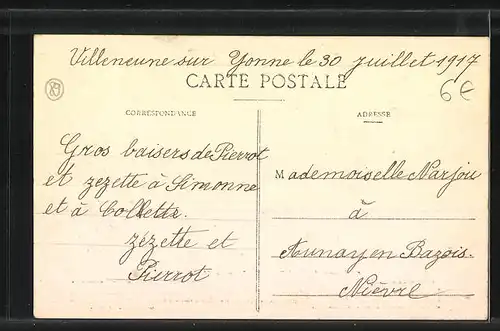 Villeneune sur Yonne le 30 juillet 1917
CARTE POSTALE
6€
CORRESPONDANCE
ADRESSE
Gros baisers de Pierrot
et zezette à Simonne
et à Collette.
zézette et
Pierrot
Mademoiselle Narjou
à
Aunay en Bazois.
Nièvre